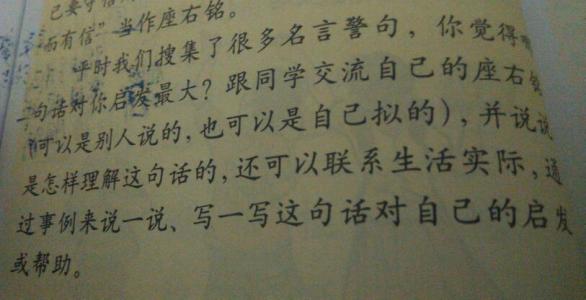 己要守信
而有信”当作座右铭。
平时我们搜集了很多名言警句，你觉得
一句话对你启发最大？跟同学交流自己的座右铭
（可以是别人说的，也可以是自己拟的），并说说
是怎样理解这句话的，还可以联系生活实际，通
过事例来说一说、写一写这句话对自己的启发
或帮助。